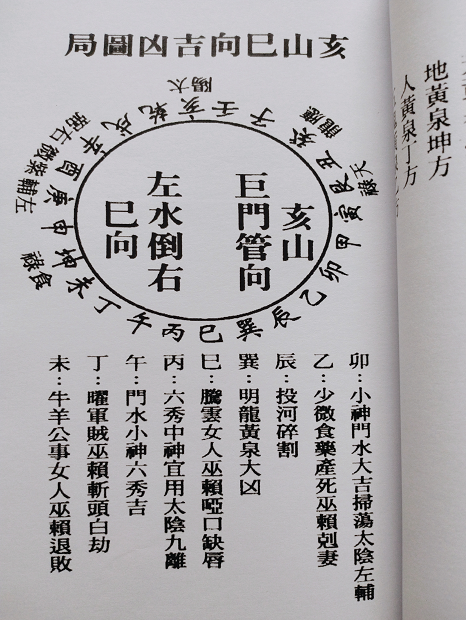 亥山巳向吉凶圖局
太陽
應龍
天祿
食祿
左輔紫微右弼
壬子癸丑艮寅甲卯乙辰巽巳丙午丁未坤申庚酉辛戌乾亥
亥山
巨門管向
左水倒右
巳向
卯：小神門水大吉掃蕩太陰左輔
乙：少微食藥產死巫賴剋妻
辰：投河碎割
巽：明龍黃泉大凶
巳：騰雲女人巫賴啞口缺唇
丙：六秀中神宜用太陰九離
午：門水小神六秀吉
丁：曜軍賊巫賴斬頭白劫
未：牛羊公事女人巫賴退敗
地黃泉坤方
人黃泉丁方